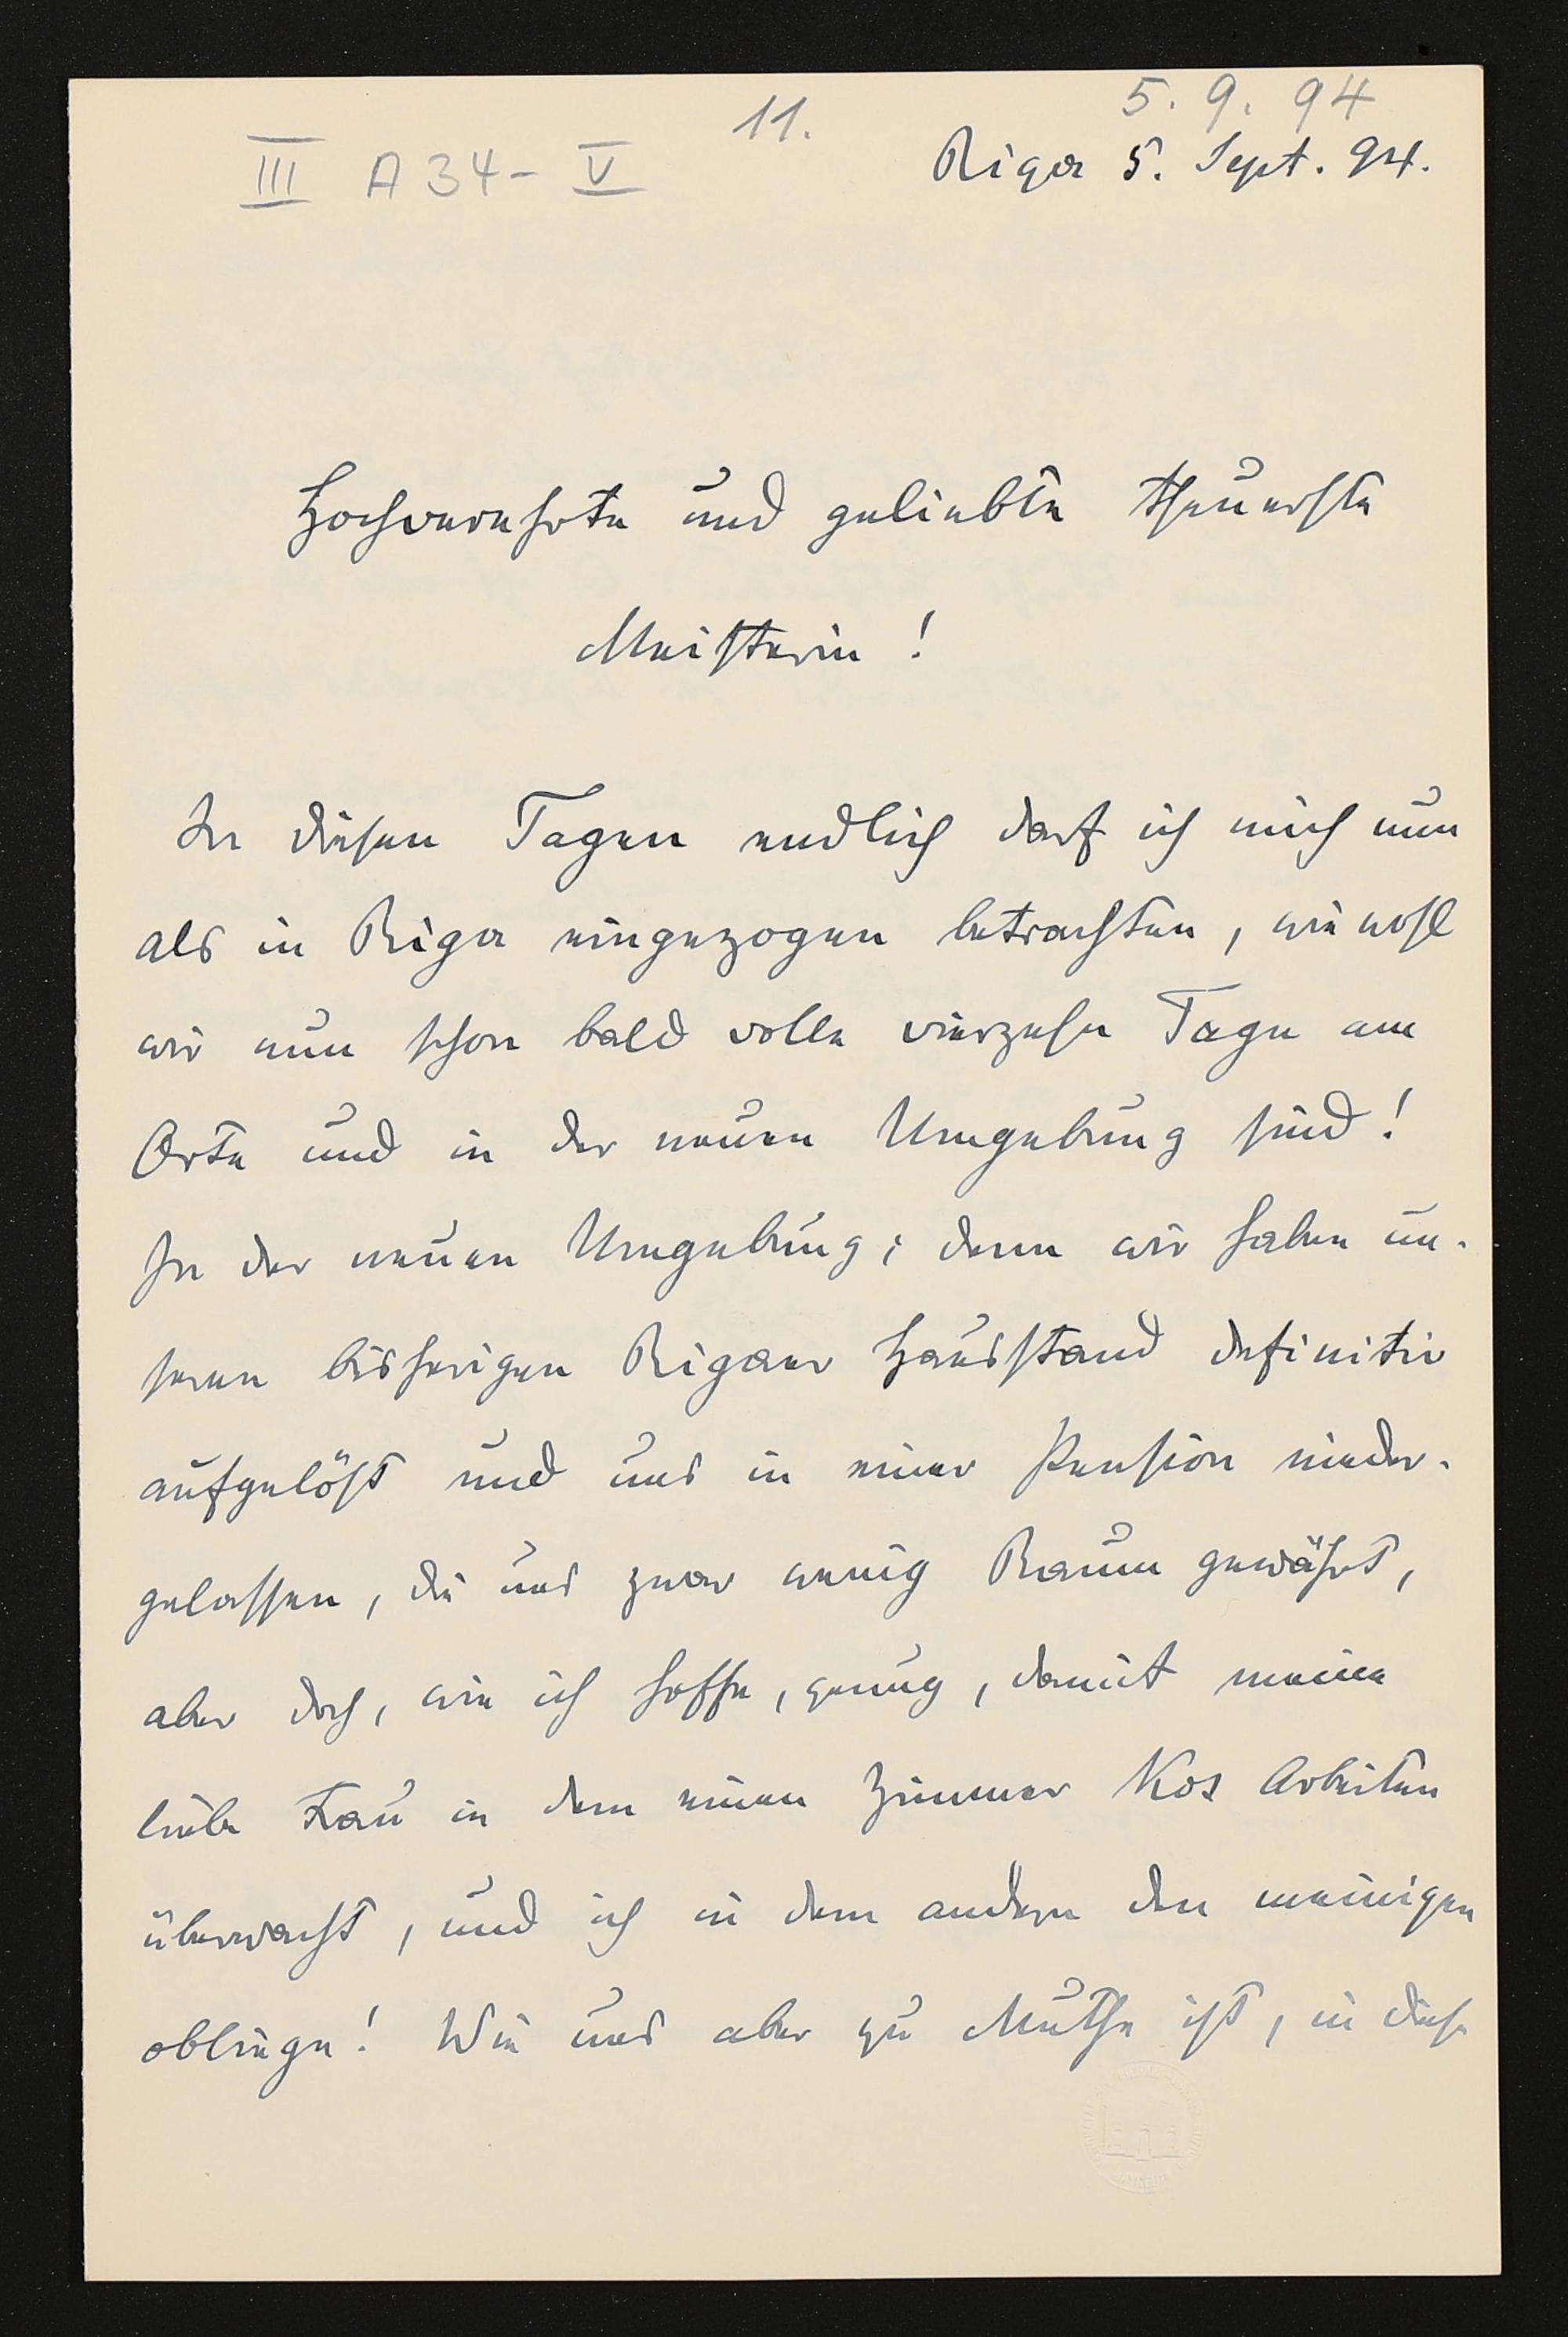 5. 9. 94
11.
III A 34 - V
Riga 5. Sept. 94.
Hochverehrte und geliebte theuerste
Meisterin!
In diesen Tagen endlich darf ich mich nun
als in Riga eingezogen betrachten, wie wohl
wir nun schon bald volle vierzehn Tage am
Orte und in der neuen Umgebung sind!
In der neuen Umgebung; denn wir haben un-
seren bisherigen Rigaer Hausstand definitiv
aufgelöst und uns in einer Pension nieder-
gelassen, die uns zwar wenig Raum gewährt,
aber doch, wie ich hoffe, genug, damit meine
liebe Frau in dem einen Zimmer Kos Arbeiten
überwacht, und ich in dem andern den meinigen
obliege! Wie uns aber zu Muthe ist, in diese